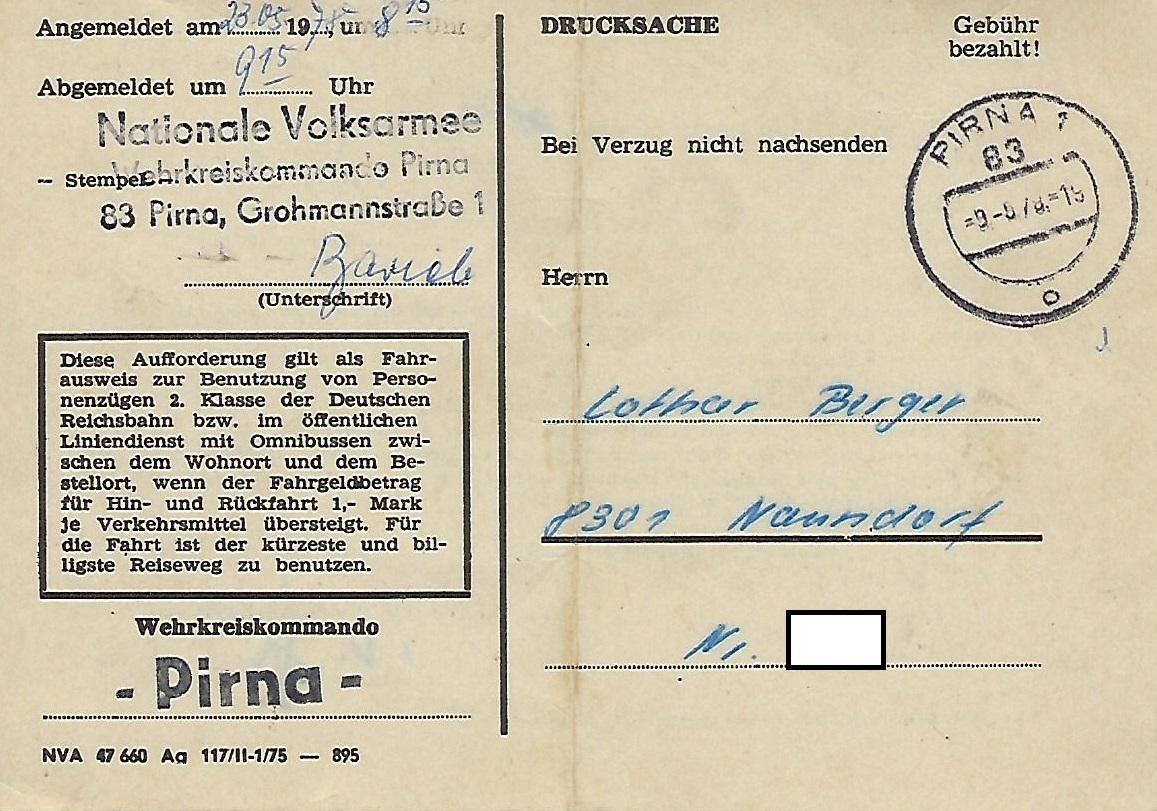 Angemeldet am 23.05 1978, um 8 15 Uhr
Abgemeldet um 9 15 Uhr
Nationale Volksarmee
Wehrkreiskommando Pirna
– Stempel –
83 Pirna, Grohmannstraße 1
(Unterschrift)
Diese Aufforderung gilt als Fahr-
ausweis zur Benutzung von Perso-
nenzügen 2. Klasse der Deutschen
Reichsbahn bzw. im öffentlichen
Liniendienst mit Omnibussen zwi-
schen dem Wohnort und dem Be-
stellort, wenn der Fahrgeldbetrag
für Hin- und Rückfahrt 1,- Mark
je Verkehrsmittel übersteigt. Für
die Fahrt ist der kürzeste und bil-
ligste Reiseweg zu benutzen.
Wehrkreiskommando
- Pirna -
NVA 47 660 Ag 117/II-1/75 — 895
DRUCKSACHE
Gebühr
bezahlt!
PIRNA 1
83
o
Bei Verzug nicht nachsenden
Herrn
Lothar Berger
8301 Naundorf
Nr.